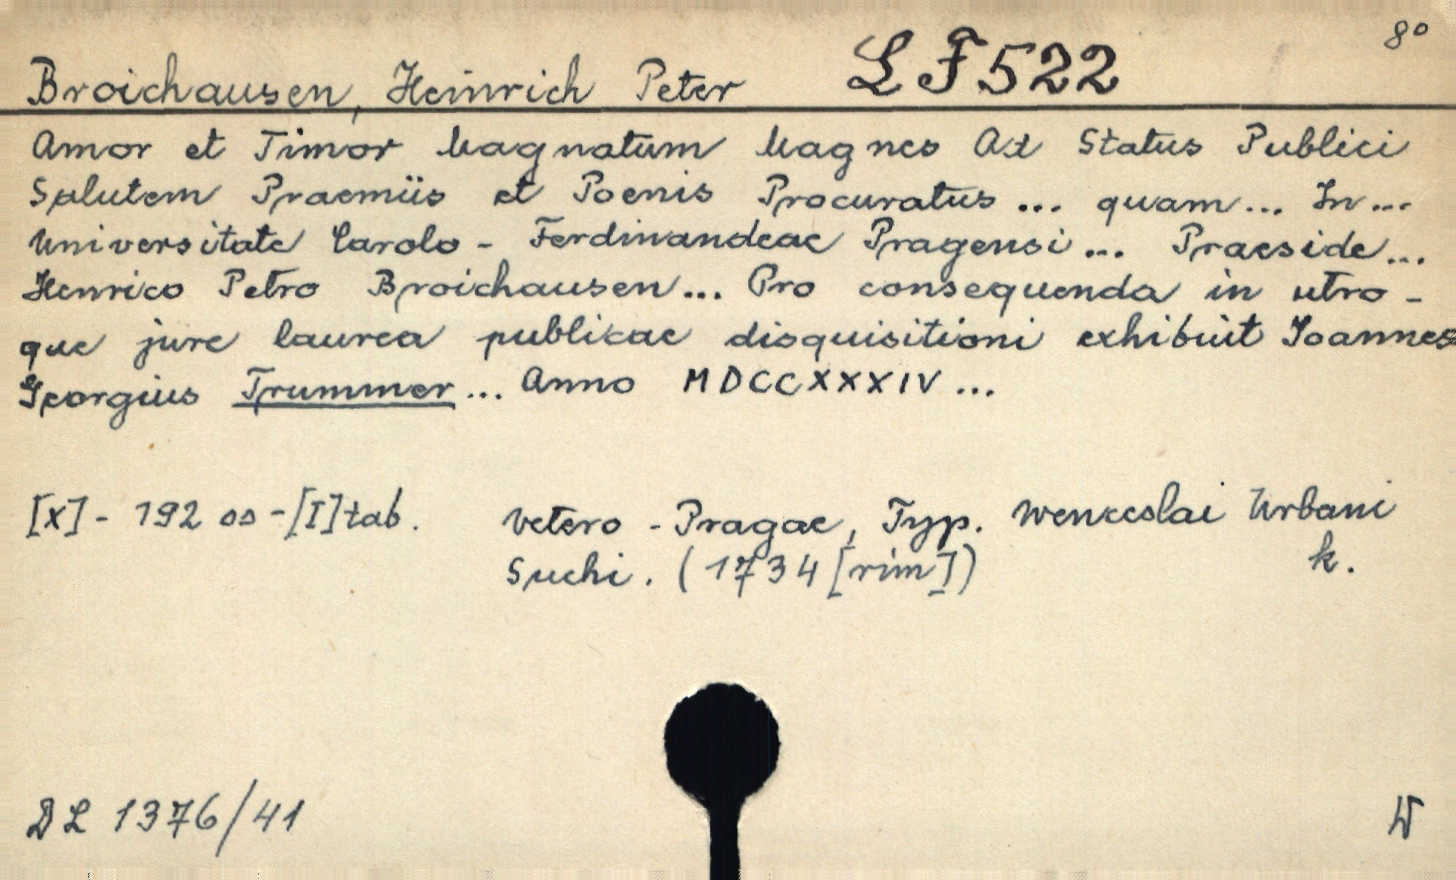 8°
Broichausen, Heinrich Peter LF522
Amor et Timor Magnatum Magnes Ad Status Publici
Salutem Praemiis et Poenis Procuratus ... quam ... In ...
Universitate Carolo - Ferdinandeae Pragensi ... Praeside ...
Henrico Petro Broichausen ... Pro consequenda in utro -
que jure laurea publicae disquisitioni exhibuit Joannes
Georgius Trummer ... Anno MDCCXXXIV ...
[X] - 192 ss - [I] tab. Vetero - Pragae, Typ. Wenceslai Urbani
Suchi. (1734 [rim]) k.
DL 1376/41 W